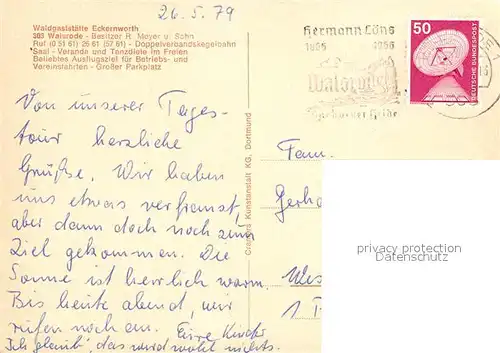 26.5.79
Waldgaststätte Eckernworth
303 Walsrode - Besitzer R. Meyer u. Sohn
Ruf (0 51 61) 25 61 (57 61) - Doppelverbandskegelbahn
Saal - Veranda und Tanzdiele im Freien
Beliebtes Ausflugsziel für Betriebs- und
Vereinsfahrten - Großer Parkplatz
Hermann Löns
1866 1966
Walsrode
Heide
50
DEUTSCHE BUNDESPOST
Von unserer Tages-
tour herzliche
Grüße. Wir haben
uns etwas verfranst,
aber dann doch noch zum
Ziel gekommen. Die
Sonne ist herrlich warm.
Bis heute abend, wir
rufen noch an. Eure
Ich glaub', das wird wohl nichts.
Cramers Kunstanstalt KG, Dortmund
Fam.
Gerha
Wes
1
privacy protection
Datenschutz